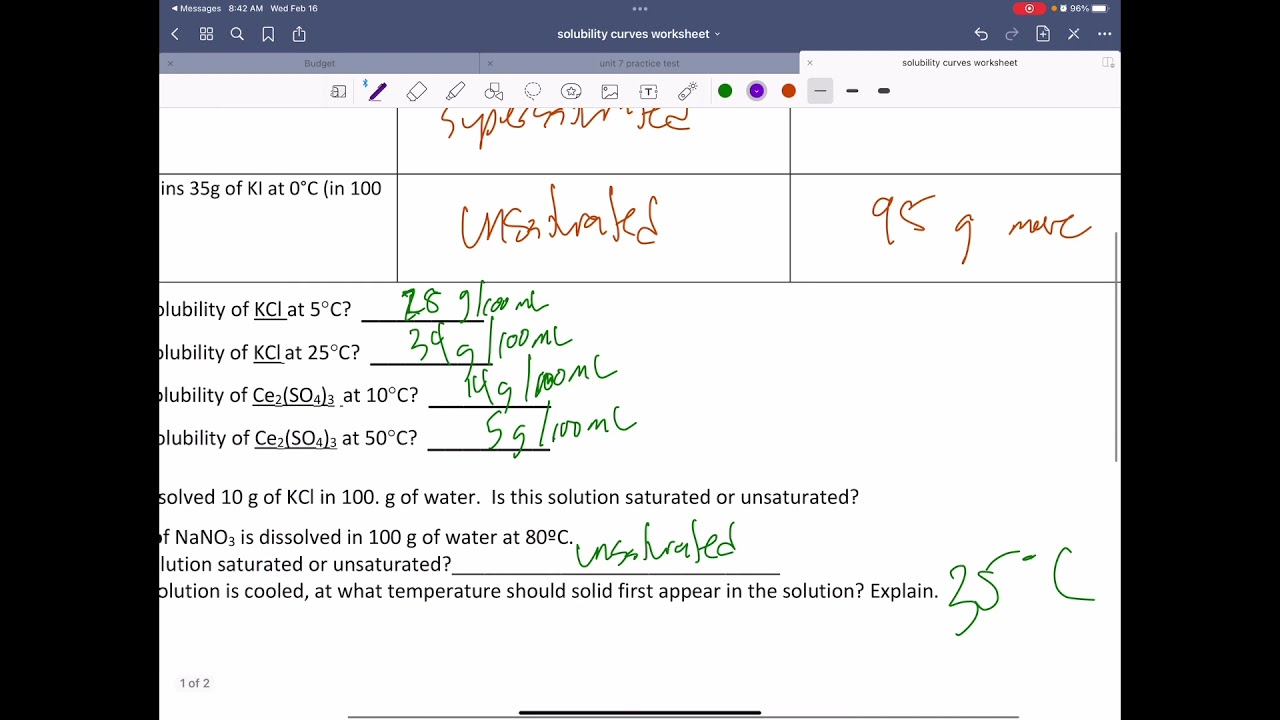 Messages 8:42 AM Wed Feb 16
96%
solubility curves worksheet
Budget
unit 7 practice test
solubility curves worksheet
T
supersaturated
ins 35g of KI at 0°C (in 100
unsaturated
95 g more
olubility of KCl at 5°C? 28 g/100mL
olubility of KCl at 25°C? 34 g/100mL
olubility of Ce₂(SO₄)₃ at 10°C? 14g/100mL
olubility of Ce₂(SO₄)₃ at 50°C? 5g/100mL
solved 10 g of KCl in 100. g of water. Is this solution saturated or unsaturated?
of NaNO₃ is dissolved in 100 g of water at 80ºC.
lution saturated or unsaturated? unsaturated
olution is cooled, at what temperature should solid first appear in the solution? Explain. 35°C
1 of 2